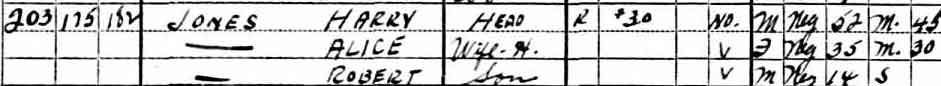 203 175 182 JONES HARRY HEAD R $30 NO. M Neg 52 M. 45
— ALICE Wife-H. V F Neg 35 M. 30
— ROBERT Son V M Neg 14 S